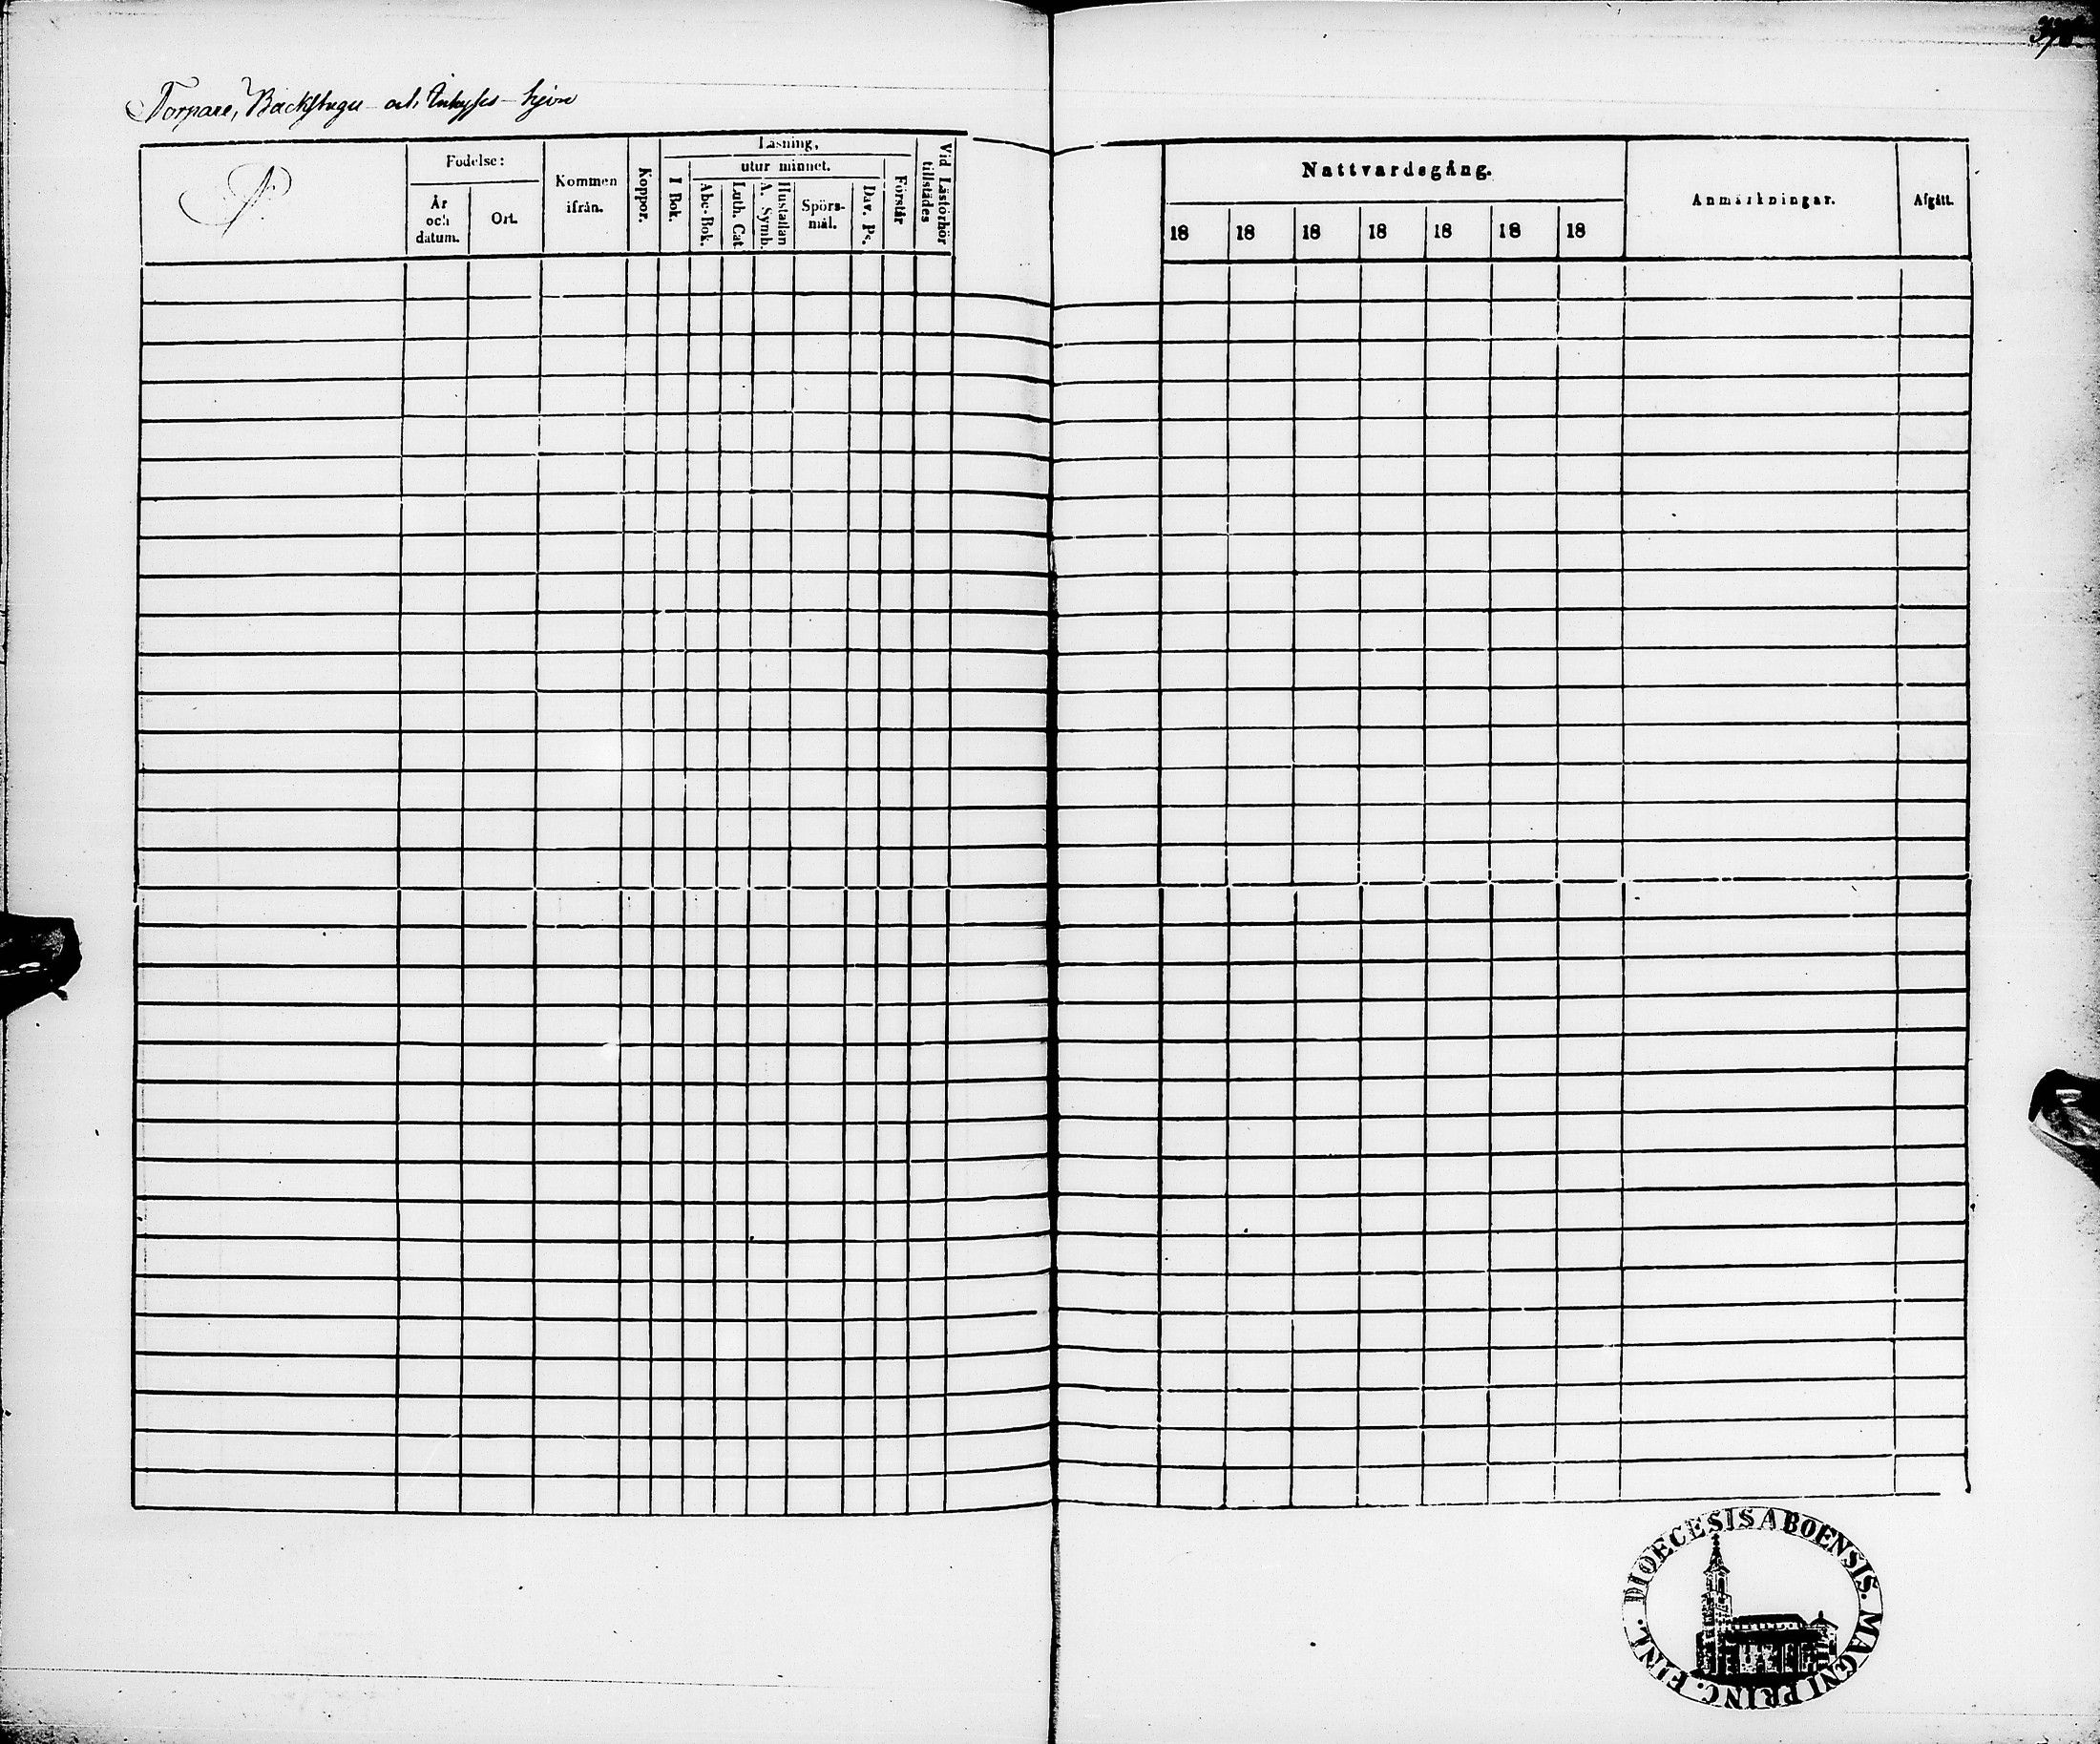 Torpare, Backstugu och Inhyses-hjon
N:
Födelse:
År och datum.
Ort.
Kommen ifrån.
Koppor.
Läsning,
I Bok.
utur minnet.
Abc-Bok.
Luth. Cat.
A. Symb.
Hustaflan
Spörs-mål.
Dav. Ps.
Förstår
Vid Läsförhör tillstädes
Nattvardsgång.
18 18 18 18 18 18 18
Anmärkningar.
Afgått.
DIOECESIS ABOENSIS. MAGNI PRINC. FINL.